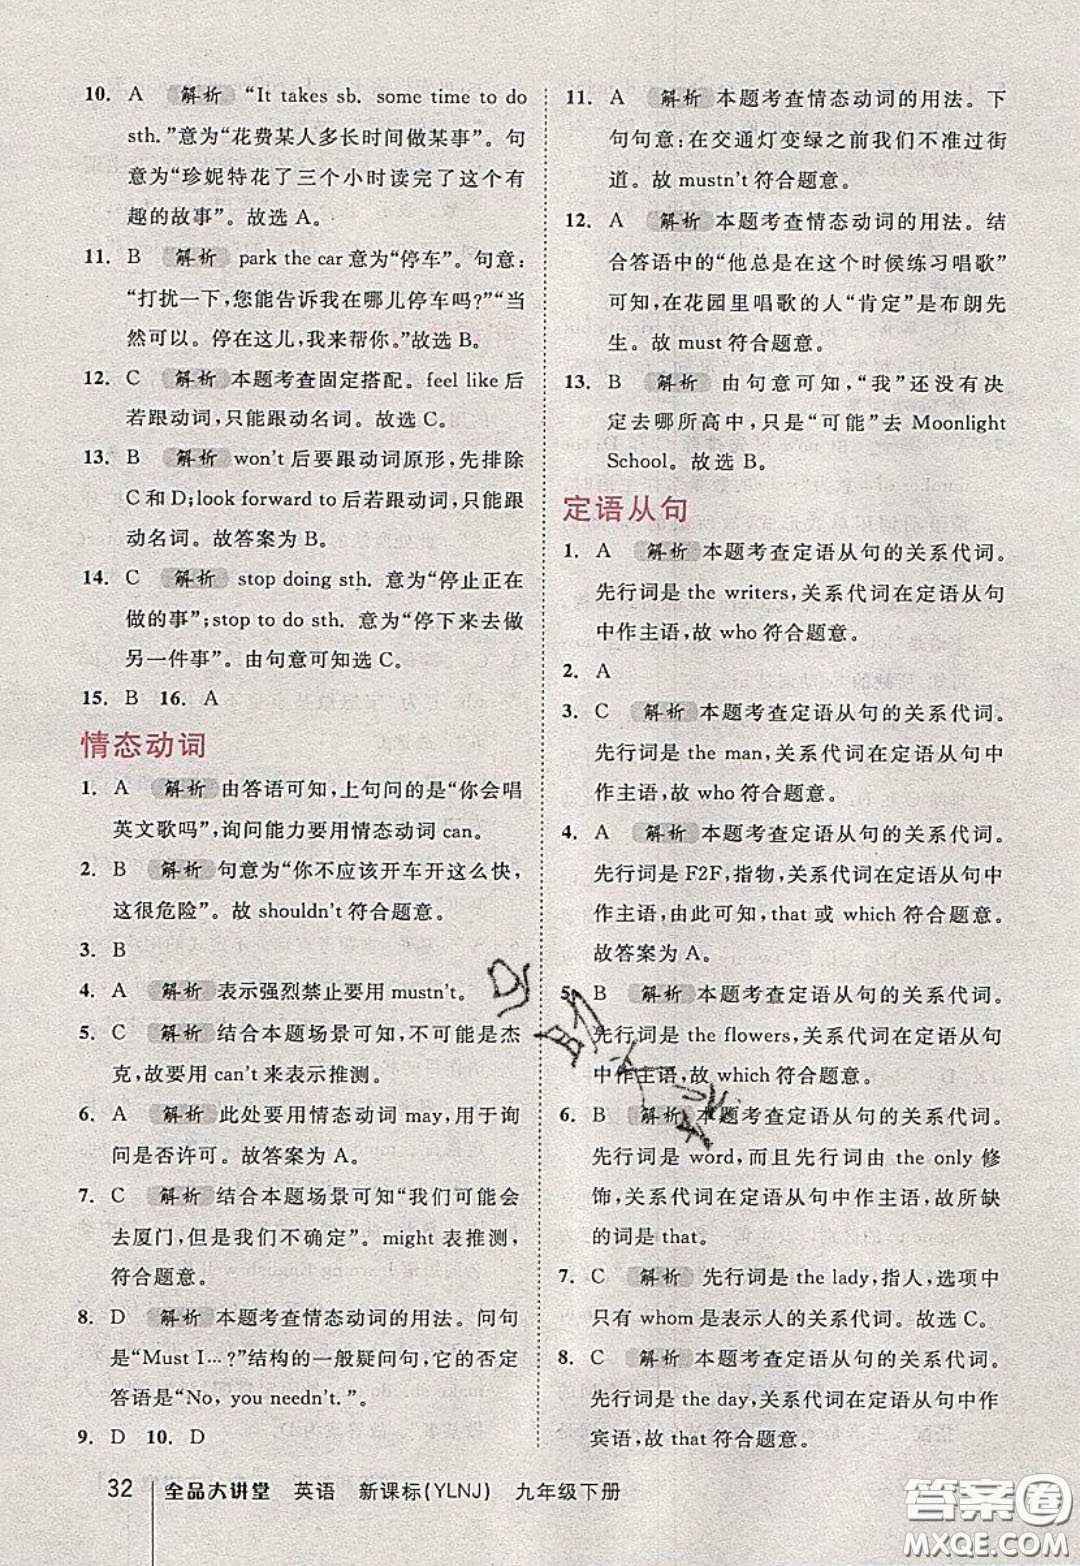 10. A 解析 “It takes sb. some time to do
sth.”意为“花费某人多长时间做某事”。句
意为“珍妮特花了三个小时读完了这个有
趣的故事”。故选 A。
11. B 解析 park the car 意为“停车”。句意：
“打扰一下,您能告诉我在哪儿停车吗?”“当
然可以。停在这儿,我来帮你。”故选 B。
12. C 解析 本题考查固定搭配。feel like 后
若跟动词,只能跟动名词。故选 C。
13. B 解析 won't 后要跟动词原形,先排除
C 和 D;look forward to 后若跟动词,只能跟
动名词。故答案为 B。
14. C 解析 stop doing sth. 意为“停止正在
做的事”;stop to do sth. 意为“停下来去做
另一件事”。由句意可知选 C。
15. B 16. A
情态动词
1. A 解析 由答语可知,上句问的是“你会唱
英文歌吗”,询问能力要用情态动词 can。
2. B 解析 句意为“你不应该开车开这么快,
这很危险”。故 shouldn't 符合题意。
3. B
4. A 解析 表示强烈禁止要用 mustn't。
5. C 解析 结合本题场景可知,不可能是杰
克,故要用 can't 来表示推测。
6. A 解析 此处要用情态动词 may,用于询
问是否许可。故答案为 A。
7. C 解析 结合本题场景可知“我们可能会
去厦门,但是我们不确定”。might 表推测,
符合题意。
8. D 解析 本题考查情态动词的用法。问句
是“Must I…?”结构的一般疑问句,它的否定
答语是“No, you needn't.”。
9. D 10. D
32 全品大讲堂 英语 新课标(YLNJ) 九年级下册
11. A 解析 本题考查情态动词的用法。下
句句意：在交通灯变绿之前我们不准过街
道。故 mustn't 符合题意。
12. A 解析 本题考查情态动词的用法。结
合答语中的“他总是在这个时候练习唱歌”
可知,在花园里唱歌的人“肯定”是布朗先
生。故 must 符合题意。
13. B 解析 由句意可知,“我”还没有决
定去哪所高中,只是“可能”去 Moonlight
School。故选 B。
定语从句
1. A 解析 本题考查定语从句的关系代词。
先行词是 the writers,关系代词在定语从句
中作主语,故 who 符合题意。
2. A
3. C 解析 本题考查定语从句的关系代词。
先行词是 the man,关系代词在定语从句中
作主语,故 who 符合题意。
4. A 解析 本题考查定语从句的关系代词。
先行词是 F2F,指物,关系代词在定语从句中
作主语,由此可知,that 或 which 符合题意。
故答案为 A。
5. B 解析 本题考查定语从句的关系代词。
先行词是 the flowers,关系代词在定语从句
中作主语,故 which 符合题意。
6. B 解析 本题考查定语从句的关系代词。
先行词是 word,而且先行词由 the only 修
饰,关系代词在定语从句中作主语,故所缺
的词是 that。
7. C 解析 先行词是 the lady,指人,选项中
只有 whom 是表示人的关系代词。故选 C。
8. C 解析 本题考查定语从句的关系代词。
先行词是 the day,关系代词在定语从句中作
宾语,故 that 符合题意。
答案圈
MXQE.COM